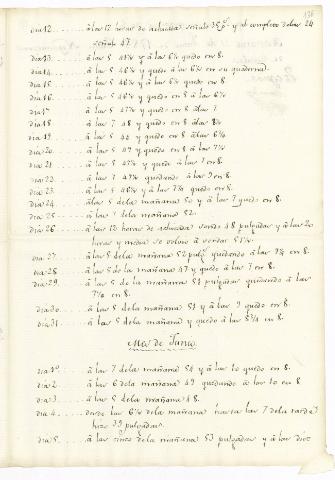 dia 12 ...... à las 12 horas de achicada señaló 35 pº y al completo delas 24
señala 47.
dia 13 ...... à las 5 41½ y à las 6½ quedo en 8.
dia 14 ...... à las 5 46½ y quedo à las 6½ en su quaderna.
dia 15 ...... à las 5 46½ y à las 6½ quedo en 8
dia 16 ...... à las 5 46½ y quedo en 8 à las 6½
dia 17 ...... à las 5 47½ y quedo en 8 à las 7
dia 18 ...... à las 7 48 y quedo en 8 à las 8½
dia 19 ...... à las 5 44 y quedo en 8 à las 6¼
dia 20 ...... à las 5 49 y quedo en 8 à las 7½
dia 21 ...... à las 5 47½ y quedo à las 7 en 8.
dia 22 ...... à las 7 47½ quedando à las 9 en 8.
dia 23 ...... à las 5 46½ y à las 7¼ quedo en 8.
dia 24 ...... à las 5 dela mañana 50 y à las 7 quedo en 8.
dia 25 ...... à las 7 dela mañana 52.
dia 26 ...... à las 12 horas de achicada sondó 48 pulgadas y à las 20
horas y media se volvio à sondar 51½.
dia 27 ...... à las 5 dela mañana 52 pulgs quedando à las 7¼ en 8.
dia 28 ...... à las 5 de la mañana 47 y quedo à las 7 en 8.
dia 29 ...... à las 5 de la mañana 51 pulgadas quedando à las
7½ en 8.
dia 30 ...... à las 5 dela mañana 51 y à las 9 quedo en 8.
dia 31 ...... à las 5 dela mañana y quedo à las 5¾ en 8.
Mes de Junio
dia 1º ...... à las 7 dela mañana 54 y à las 10 quedo en 8.
dia 2 ...... à las 6 dela mañana 49 quedando à las 10 en 8
dia 3 ...... à las 5 dela mañana 48.
dia 4 ...... desde las 6½ dela mañana hasta las 7 de la tarde
hizo 39 pulgadas.
dia 5 ...... à las cinco dela mañana 53 pulgadas y à las diez